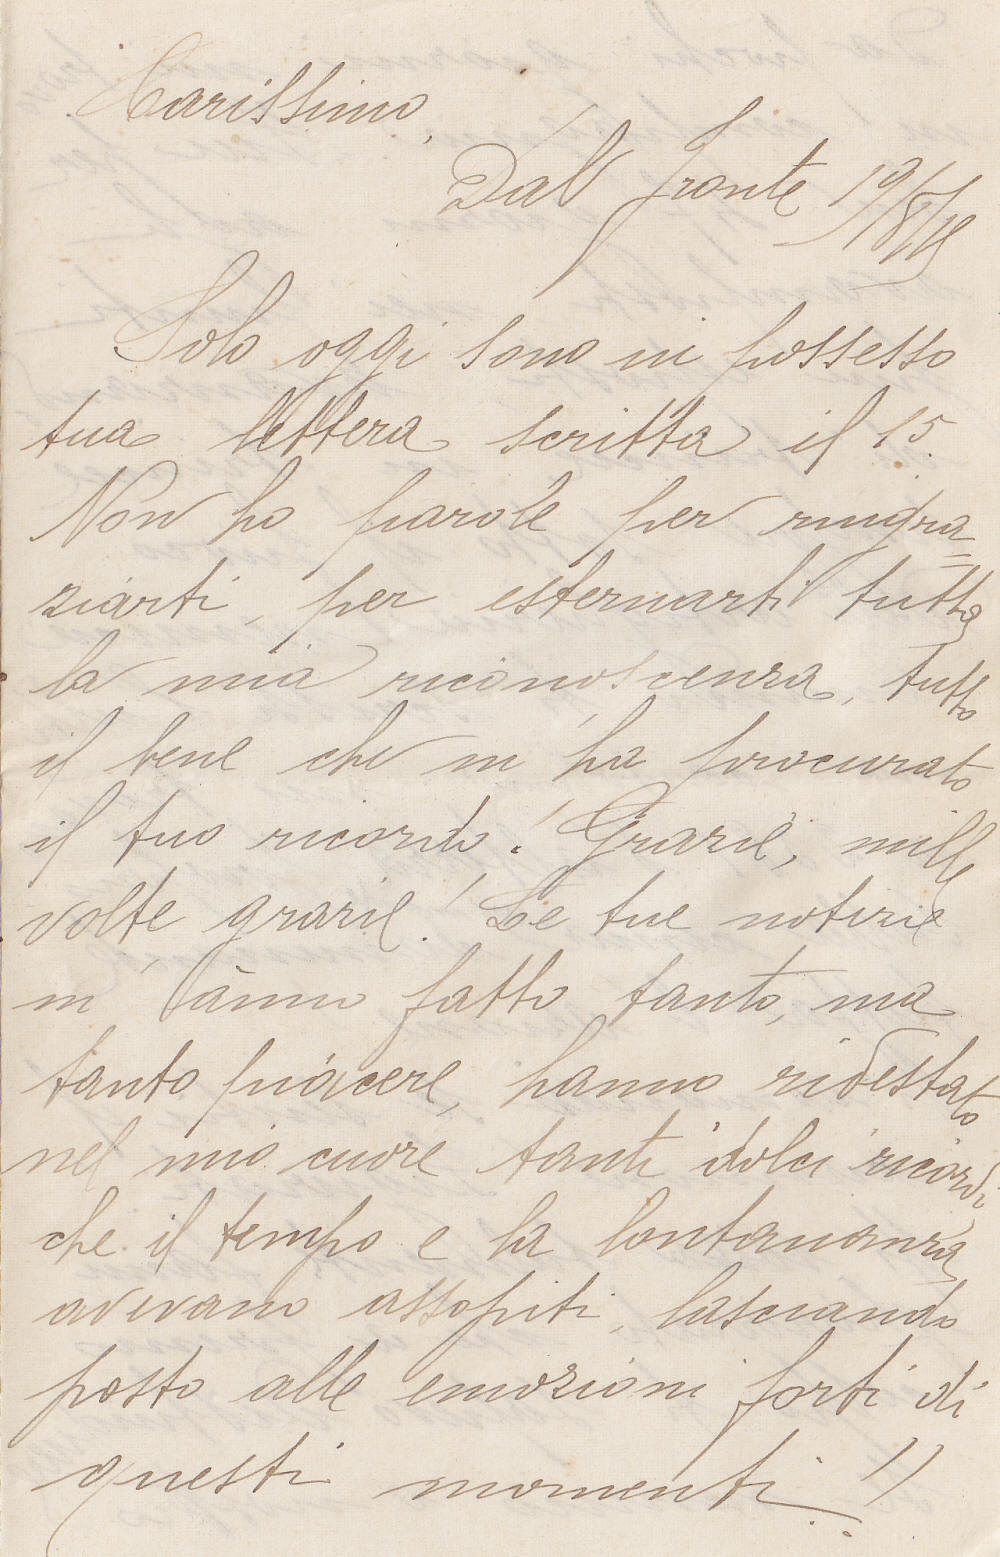 Carissimo,
Dal fronte 19/8/18
Solo oggi sono in possesso
tua lettera scritta il 15.
Non ho parole per ringra=
ziarti, per esternarti tutta
la mia riconoscenza, tutto
il bene che m'ha procurato
il tuo ricordo! Grazie, mille
volte grazie! Le tue notizie
m'ànno fatto tanto, ma
tanto piacere, hanno ridestato
nel mio cuore tanti dolci ricordi
che il tempo e la lontananza
avevano assopiti, lasciando
posto alle emozioni forti di
questi momenti!!